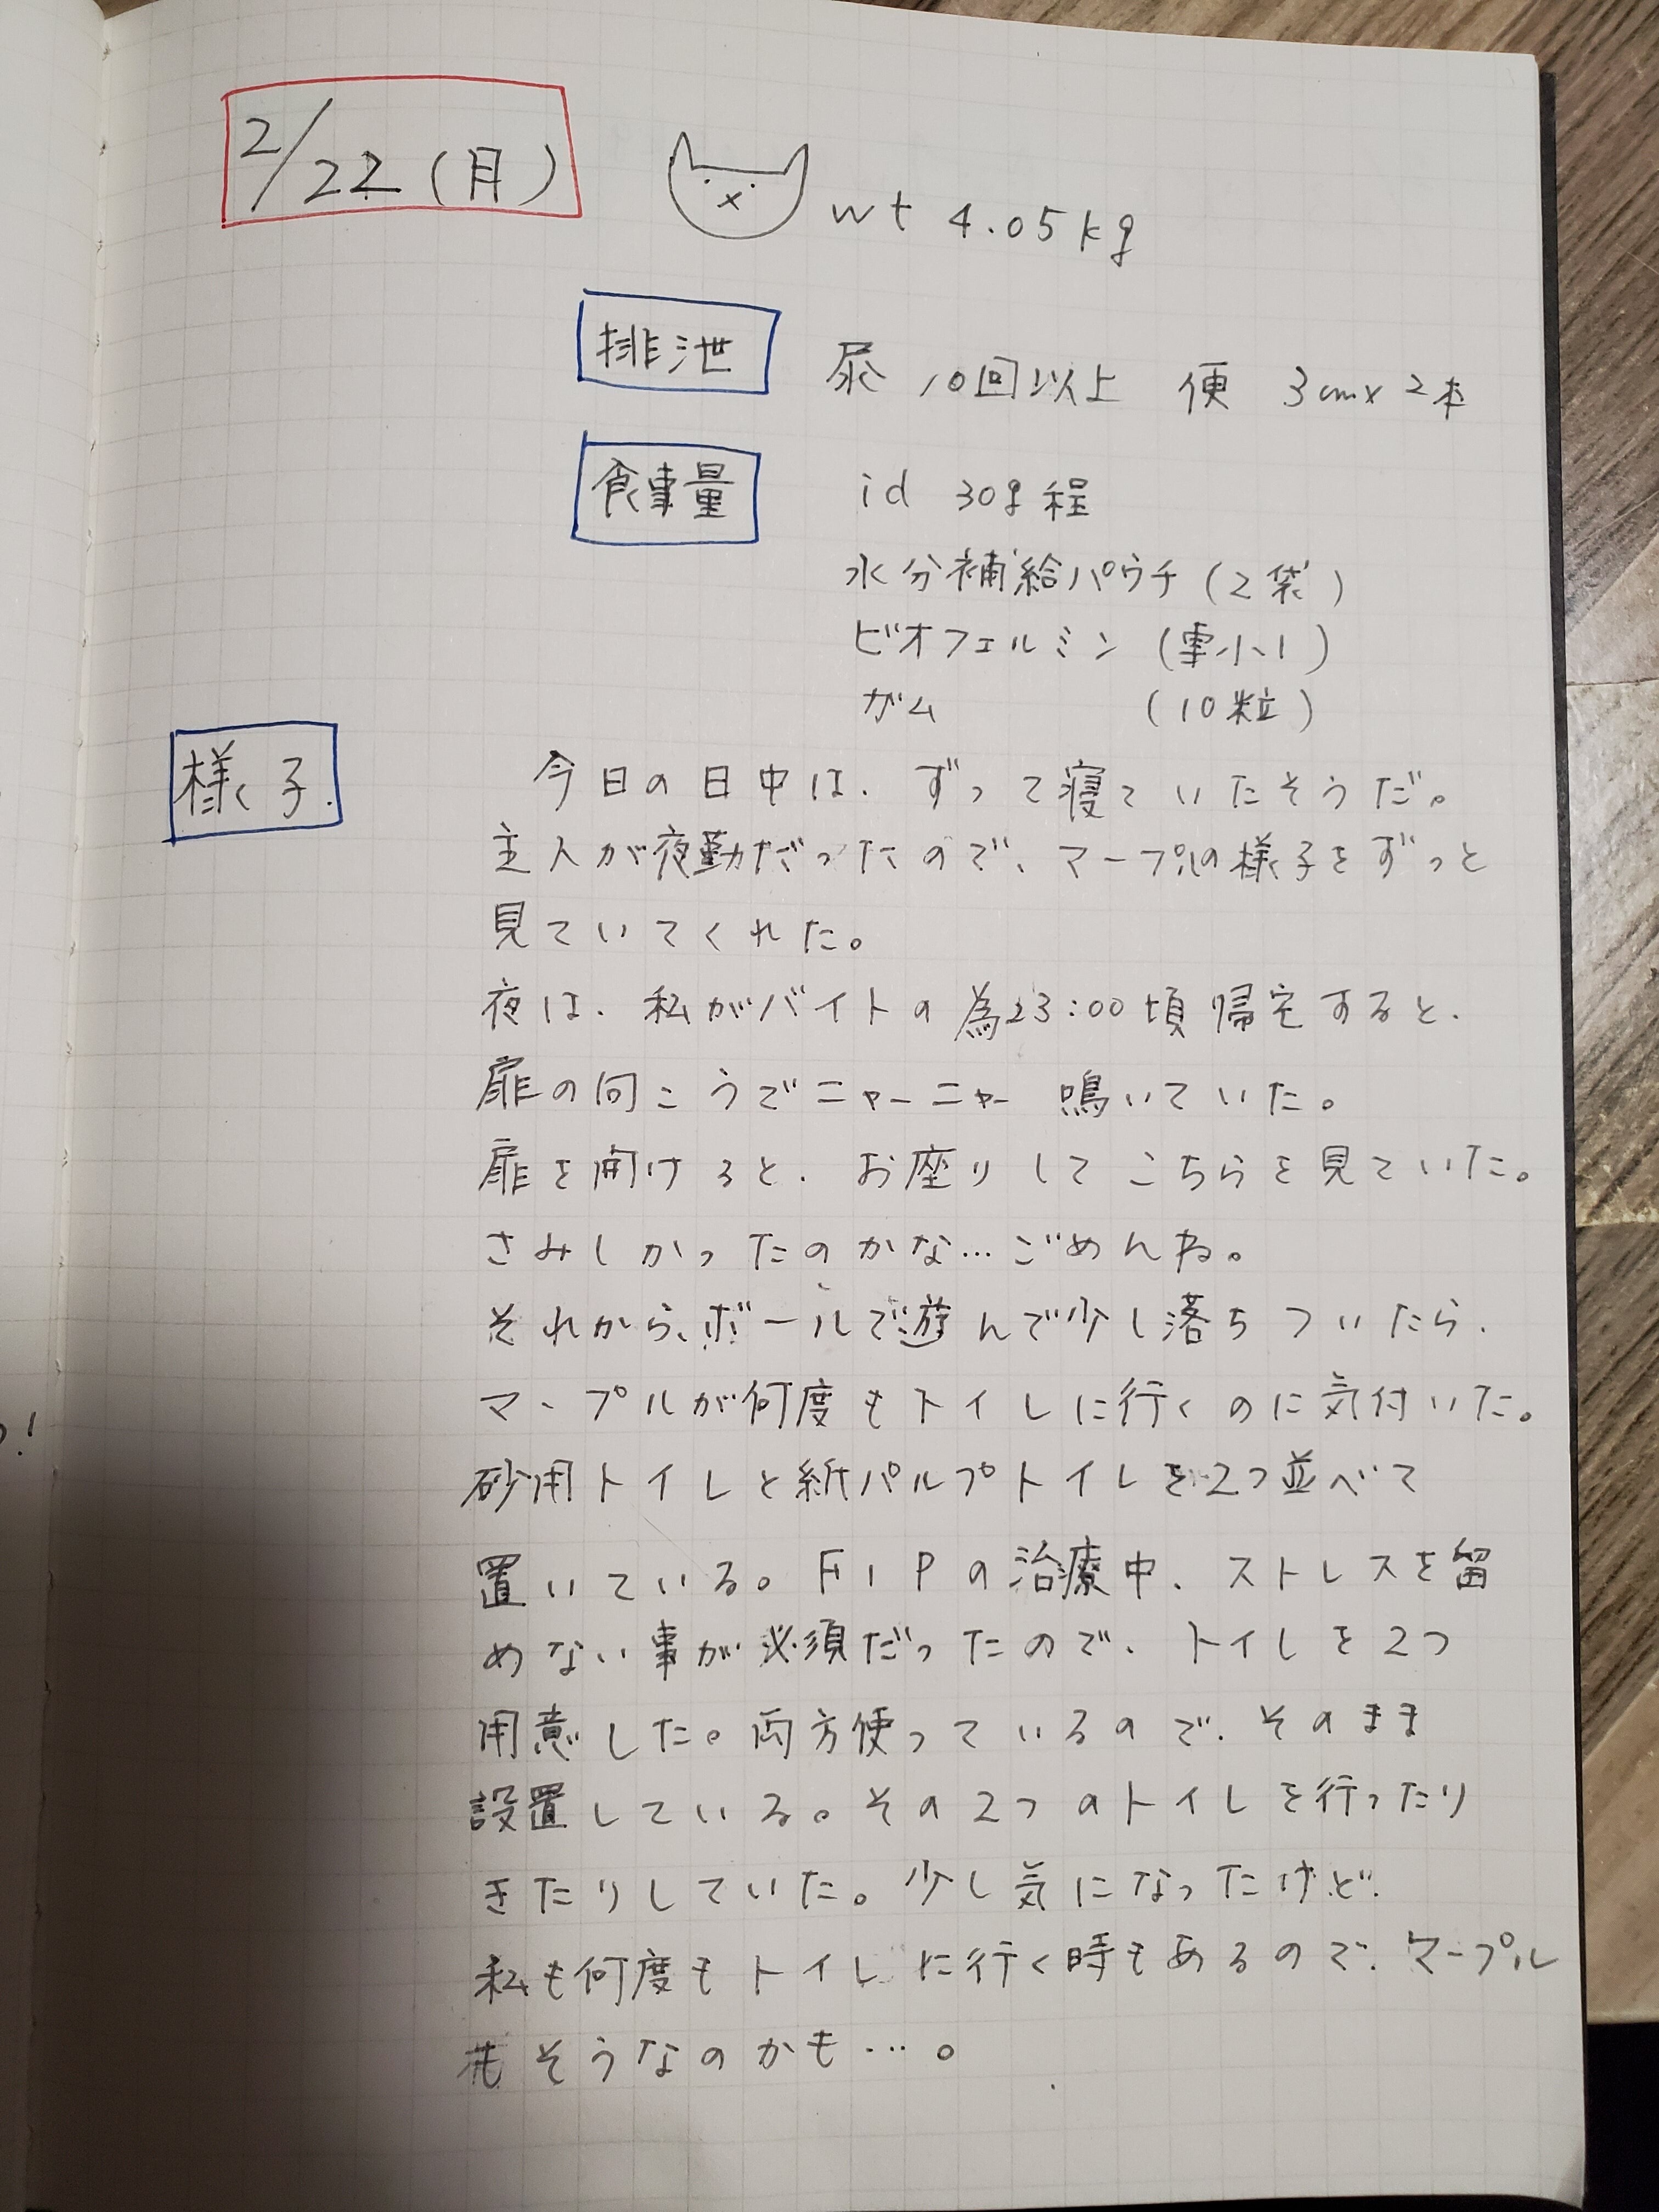 2/22(月)
wt 4.05kg
排泄 尿 10回以上 便 3cm×2本
食事量 id 30g程
水分補給パウチ(2袋)
ビオフェルミン(耳小1)
ガム (10粒)
様子.
今日の日中は、ずって寝ていたそうだ。
主人が夜勤だったので、マープルの様子をずっと
見ていてくれた。
夜は、私がバイトの為23:00頃帰宅すると、
扉の向こうでニャーニャー鳴いていた。
扉を開けると、お座りしてこちらを見ていた。
さみしかったのかな…ごめんね。
それから、ボールで遊んで少し落ちついたら、
マープルが何度もトイレに行くのに気付いた。
砂用トイレと紙パルプトイレを2つ並べて
置いている。FIPの治療中、ストレスを留
めない事が必須だったので、トイレを2つ
用意した。両方使っているので、そのまま
設置している。その2つのトイレを行ったり
きたりしていた。少し気になったけど、
私も何度もトイレに行く時もあるので、マープル
もそうなのかも…。